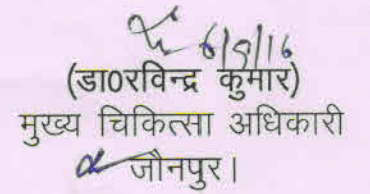 6/9/16
(डा0रविन्द्र कुमार)
मुख्य चिकित्सा अधिकारी
जौनपुर।